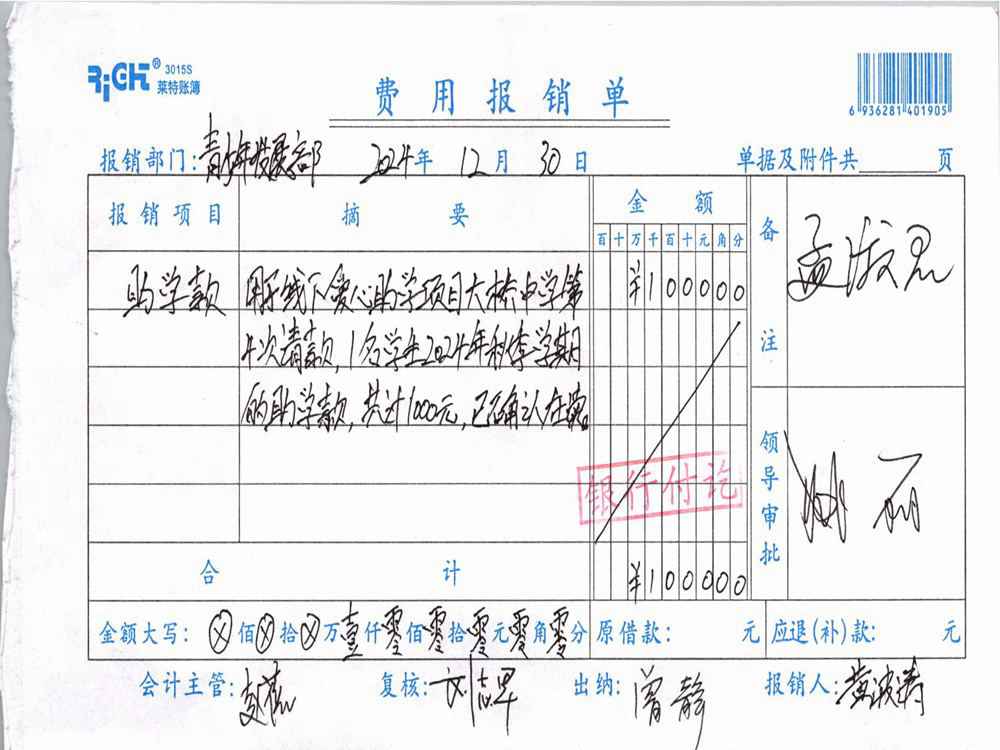 RiGHT® 3015S
莱特账簿
费用报销单
6 936281 401905
报销部门:青少年发展部 2024年 12月 30日 单据及附件共 页
报销项目 摘要 金额 备注
百十万千百十元角分
助学款 用于线下爱心助学项目大桥中学第 ¥100000
4次请款,1名学生2024年秋季学期
的助学款,共计1000元,已确认在读。
银行付讫
领导审批
合计 ¥100000
金额大写:ⓧ佰ⓧ拾ⓧ万壹仟零佰零拾零元零角零分 原借款: 元 应退(补)款: 元
会计主管: 复核:刘志早 出纳:曾静 报销人:黄波涛